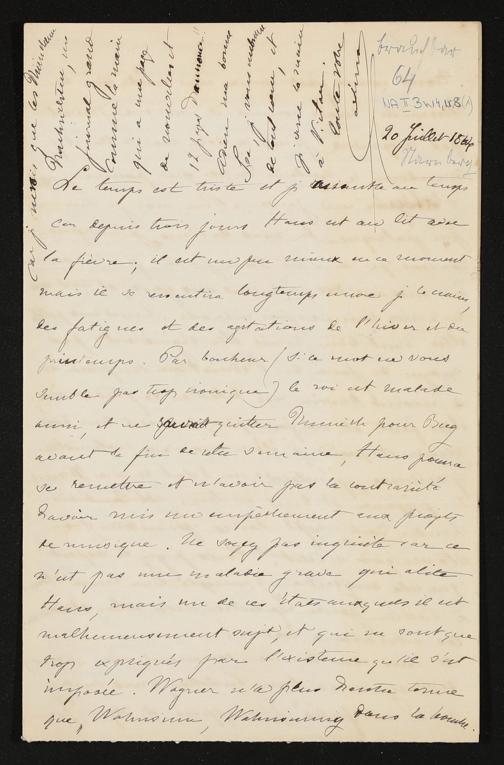 brauchbar
64
20 Juillet 1864
Starnberg
Le temps est triste et je ressemble au temps
car depuis trois jours Hans est au lit avec
la fièvre; il est un peu mieux en ce moment
mais il se ressentira longtemps encore je le crains,
des fatigues et des agitations de l'hiver et du
printemps. Par bonheur (si ce mot ne vous
semble pas trop ironique) le roi est malade
aussi, et ne saurait quitter Munich pour Berg
avant la fin de cette semaine, Hans pourra
se remettre et n'avoir pas la contrariété
d'avoir mis un empêchement aux projets
de musique. Ne soyez pas inquiète car ce
n'est pas une maladie grave qui alite
Hans, mais un de ces états auxquels il est
malheureusement sujet, et qui ne sont que
trop expliqués par l'existence qu'il s'est
imposée. Wagner n'a plus d'autre terme
que "Wahnsinn, Wahnsinnig" dans la bouche.
car je
que les
journal grand
comme la main
qui a une page
de nouvelles et
12 pages d'annonces!
ma bonne
je vous embrasse
de tout cœur, et
la main
à
toute votre